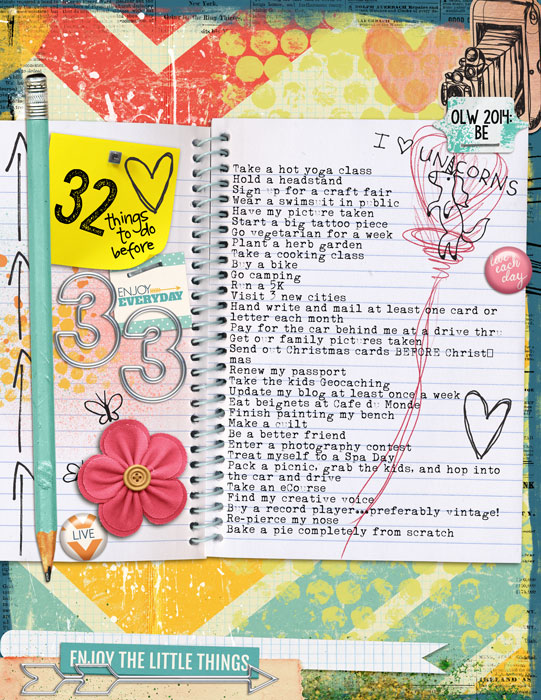 New York.
GOOD
OLW 2014:
BE
I ♡ UNICORNS
32
things
to do
before
33
ENJOY
EVERYDAY
live
each
day
Take a hot yoga class
Hold a headstand
Sign up for a craft fair
Wear a swimsuit in public
Have my picture taken
Start a big tattoo piece
Go vegetarian for a week
Plant a herb garden
Take a cooking class
Buy a bike
Go camping
Run a 5K
Visit 3 new cities
Hand write and mail at least one card or
letter each month
Pay for the car behind me at a drive thru
Get our family pictures taken
Send out Christmas cards BEFORE Christ
mas
Renew my passport
Take the kids Geocaching
Update my blog at least once a week
Eat beignets at Cafe du Monde
Finish painting my bench
Make a quilt
Be a better friend
Enter a photography contest
Treat myself to a Spa Day
Pack a picnic, grab the kids, and hop into
the car and drive
Take an eCourse
Find my creative voice
Buy a record player...preferably vintage!
Re-pierce my nose
Bake a pie completely from scratch
LIVE
ENJOY THE LITTLE THINGS
IRELAND AS